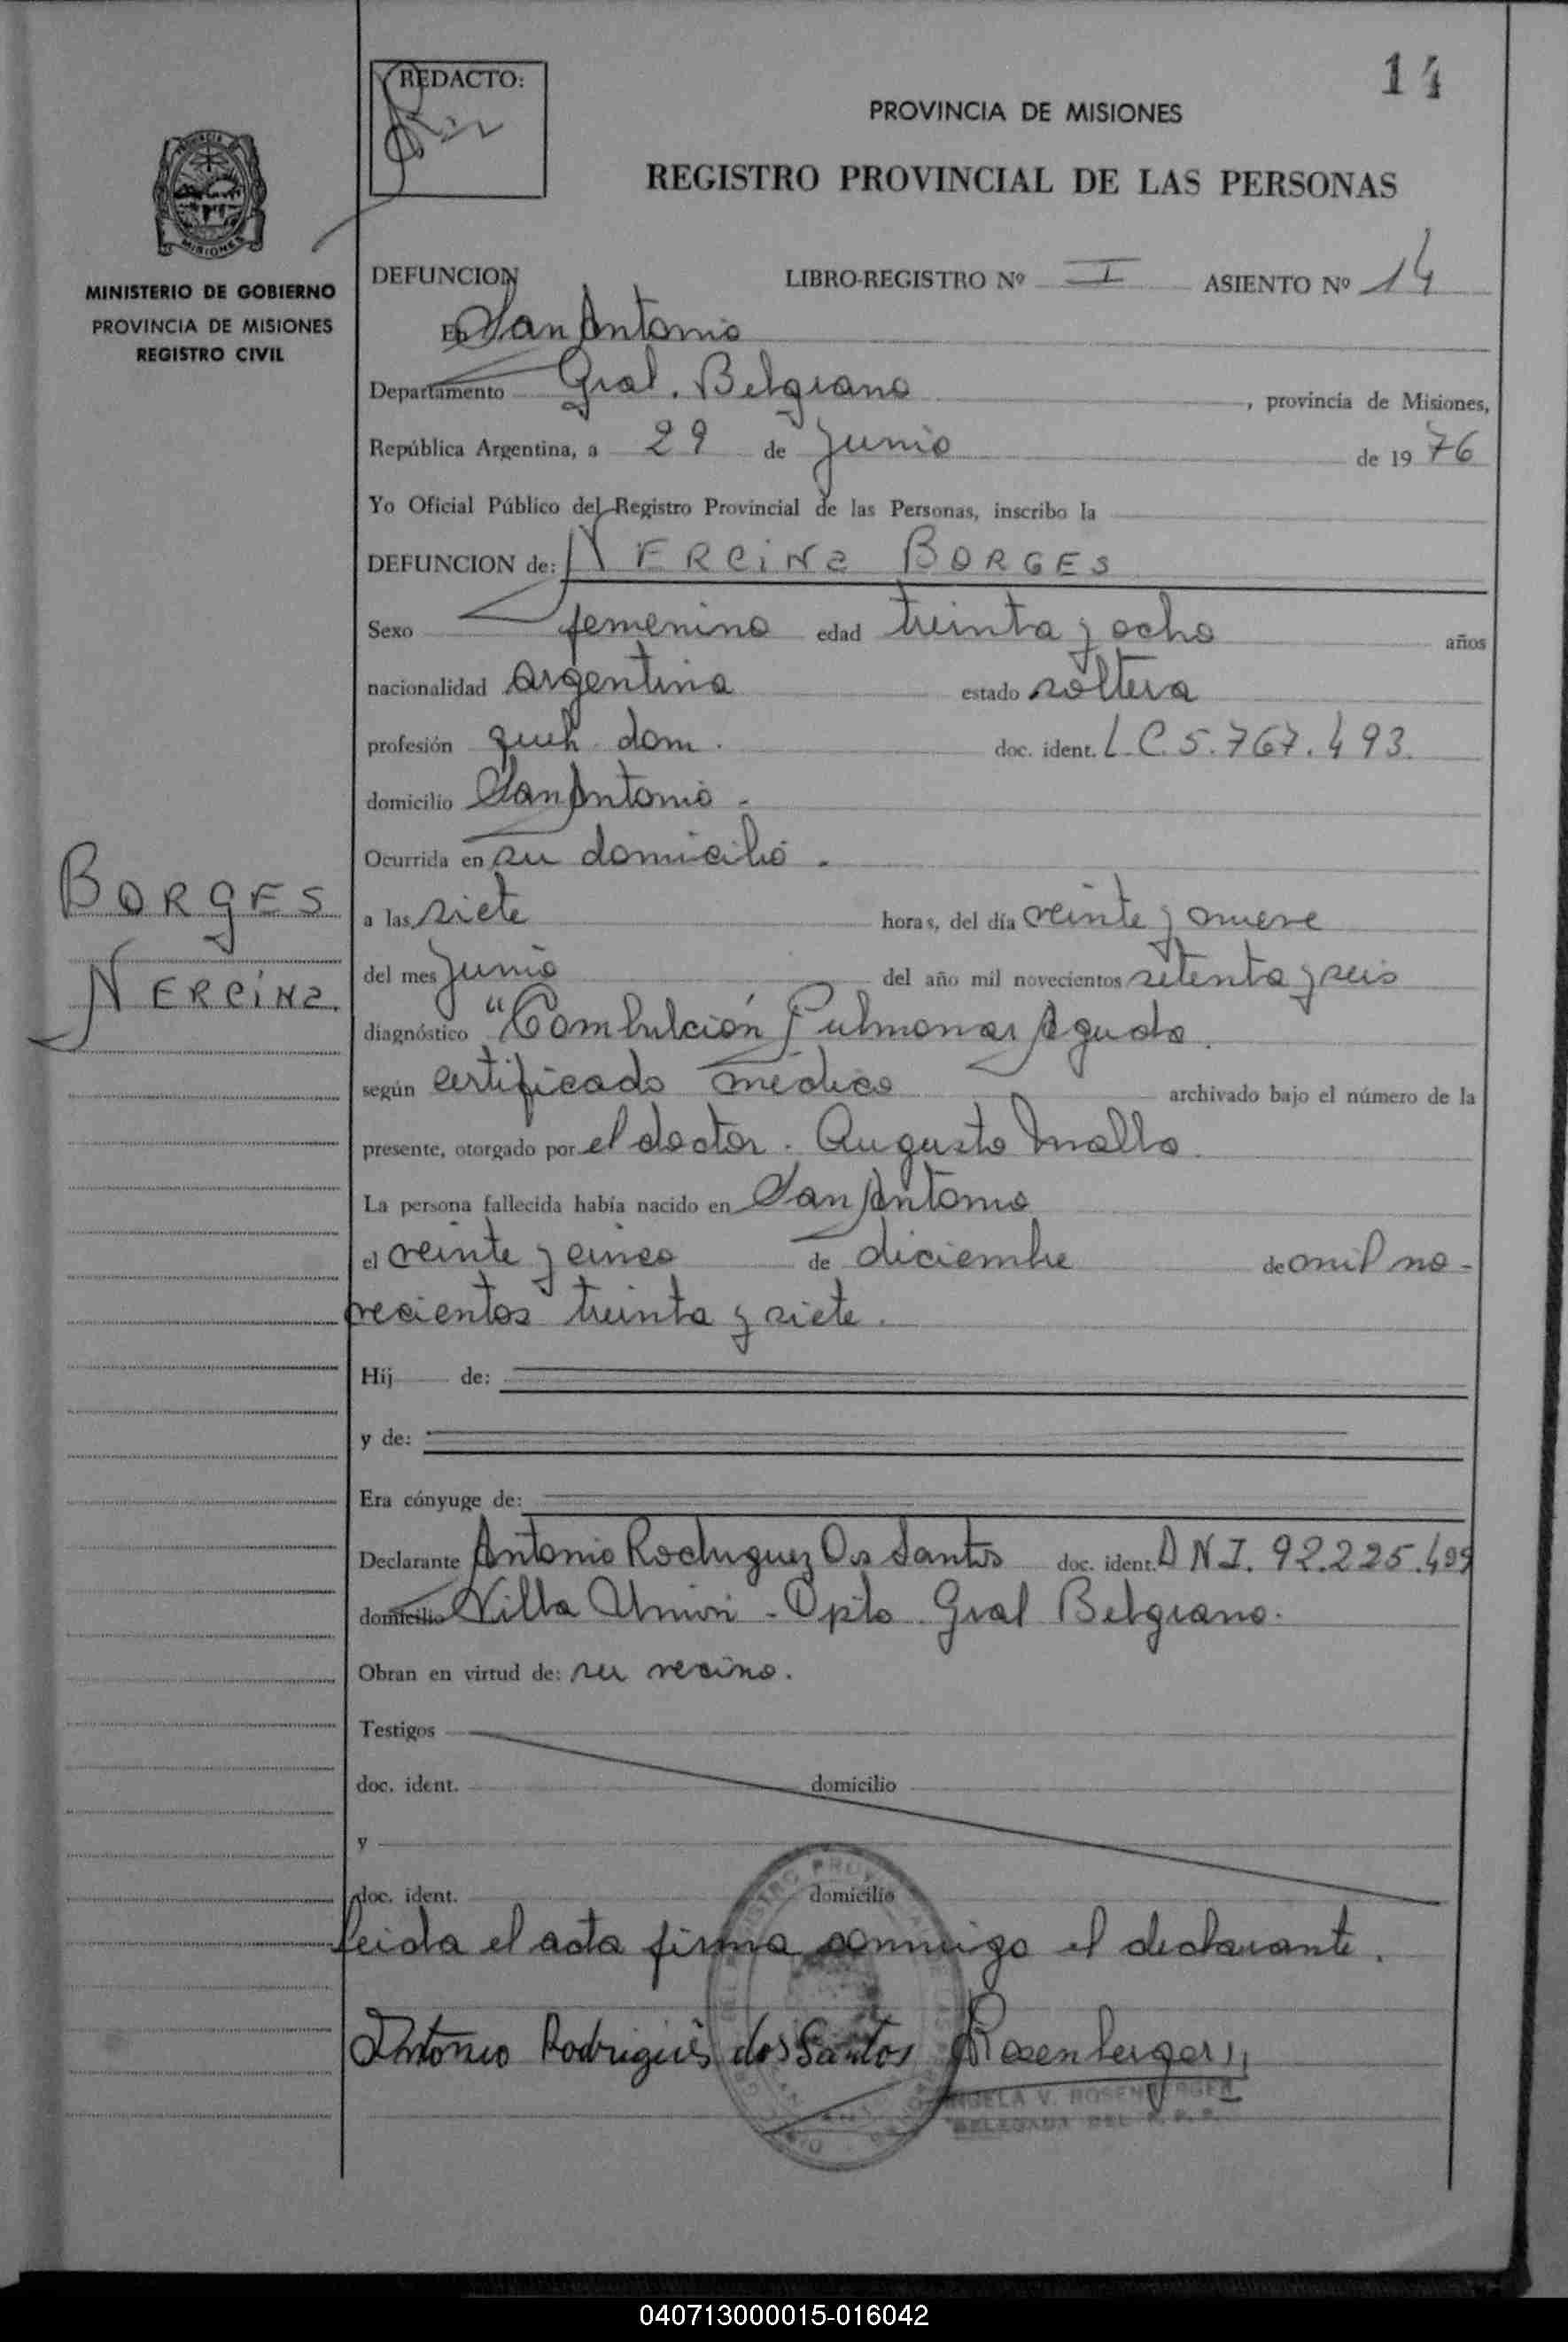 14
REDACTO:
PROVINCIA DE MISIONES
REGISTRO PROVINCIAL DE LAS PERSONAS
MISIONES
MINISTERIO DE GOBIERNO
PROVINCIA DE MISIONES
REGISTRO CIVIL
DEFUNCION LIBRO-REGISTRO Nº I ASIENTO Nº 14
En San Antonio
Departamento Gral. Belgrano, provincia de Misiones,
República Argentina, a 29 de Junio de 1976
Yo Oficial Público del Registro Provincial de las Personas, inscribo la
DEFUNCION de: NERCINa BORGES
Sexo femenino edad treinta y ocho años
nacionalidad argentina estado soltera
profesión queh. dom. doc. ident. L.C. 5.767.493.
domicilio San Antonio.
Ocurrida en su domicilio.
BORGES
a las siete horas, del día veinte y nueve
NERCINa.
del mes Junio del año mil novecientos setenta y seis
diagnóstico "Combulción Pulmonar Aguda.
según certificado médico archivado bajo el número de la
presente, otorgado por el doctor. Augusto Mallo.
La persona fallecida había nacido en San Antonio
el veinte y cinco de diciembre de mil no-
vecientos treinta y siete.
Hij de:
y de:
Era cónyuge de:
Declarante Antonio Rodriguez Dos Santos doc. ident. DNI. 92.225.499
domicilio Villa Union - Dpto Gral Belgrano.
Obran en virtud de: su vecino.
Testigos
doc. ident. domicilio
y
doc. ident. domicilio
leida el acta firma conmigo el declarante.
Antonio Rodrigues dos Santos Rosenberger
ANGELA V. ROSENBERGER
DELEGADA DEL R.P.P.
040713000015-016042